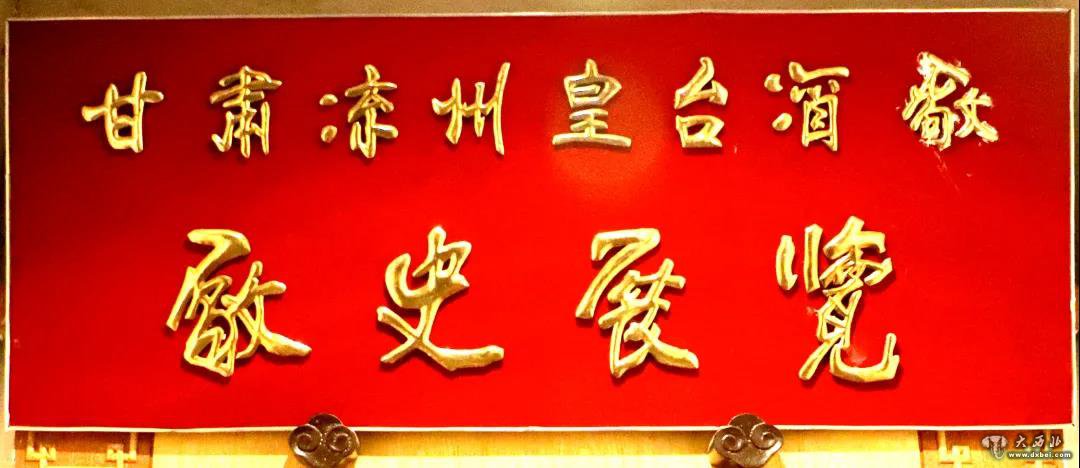 甘肅凉州皇台酒廠
廠史展覽
大西北
www.dxbei.com